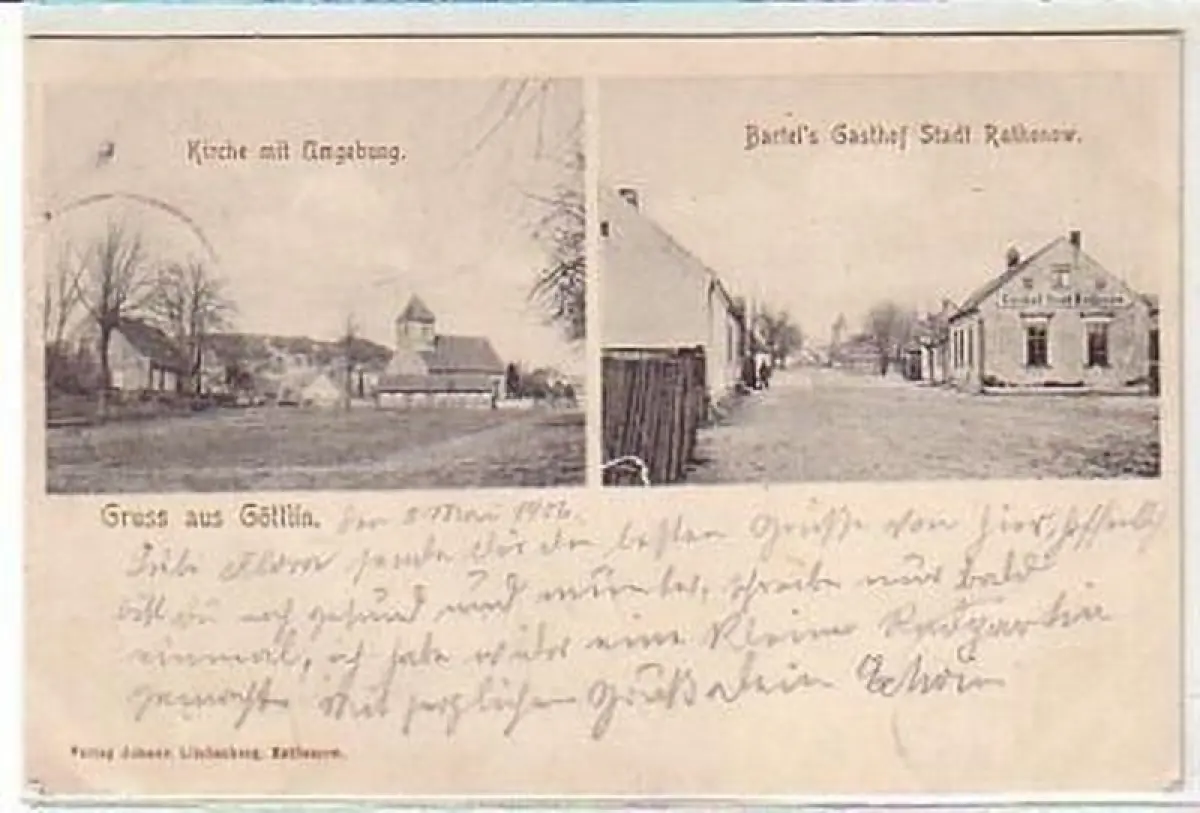 Kirche mit Umgebung.
Bartel's Gasthof Stadt Rathenow.
Gasthof Stadt Rathenow
Gruss aus Göttlin. den 8 Mai 1906.
Liebe Flora sende Dir die besten Grüße von hier, hoffentl
bist du noch gesund und munter, schreibe mir bald
einmal, ich habe wieder eine kleine Radpartie
gemacht. Mit herzlichen Gruß Dein
Verlag Johann Lindenberg, Rathenow.